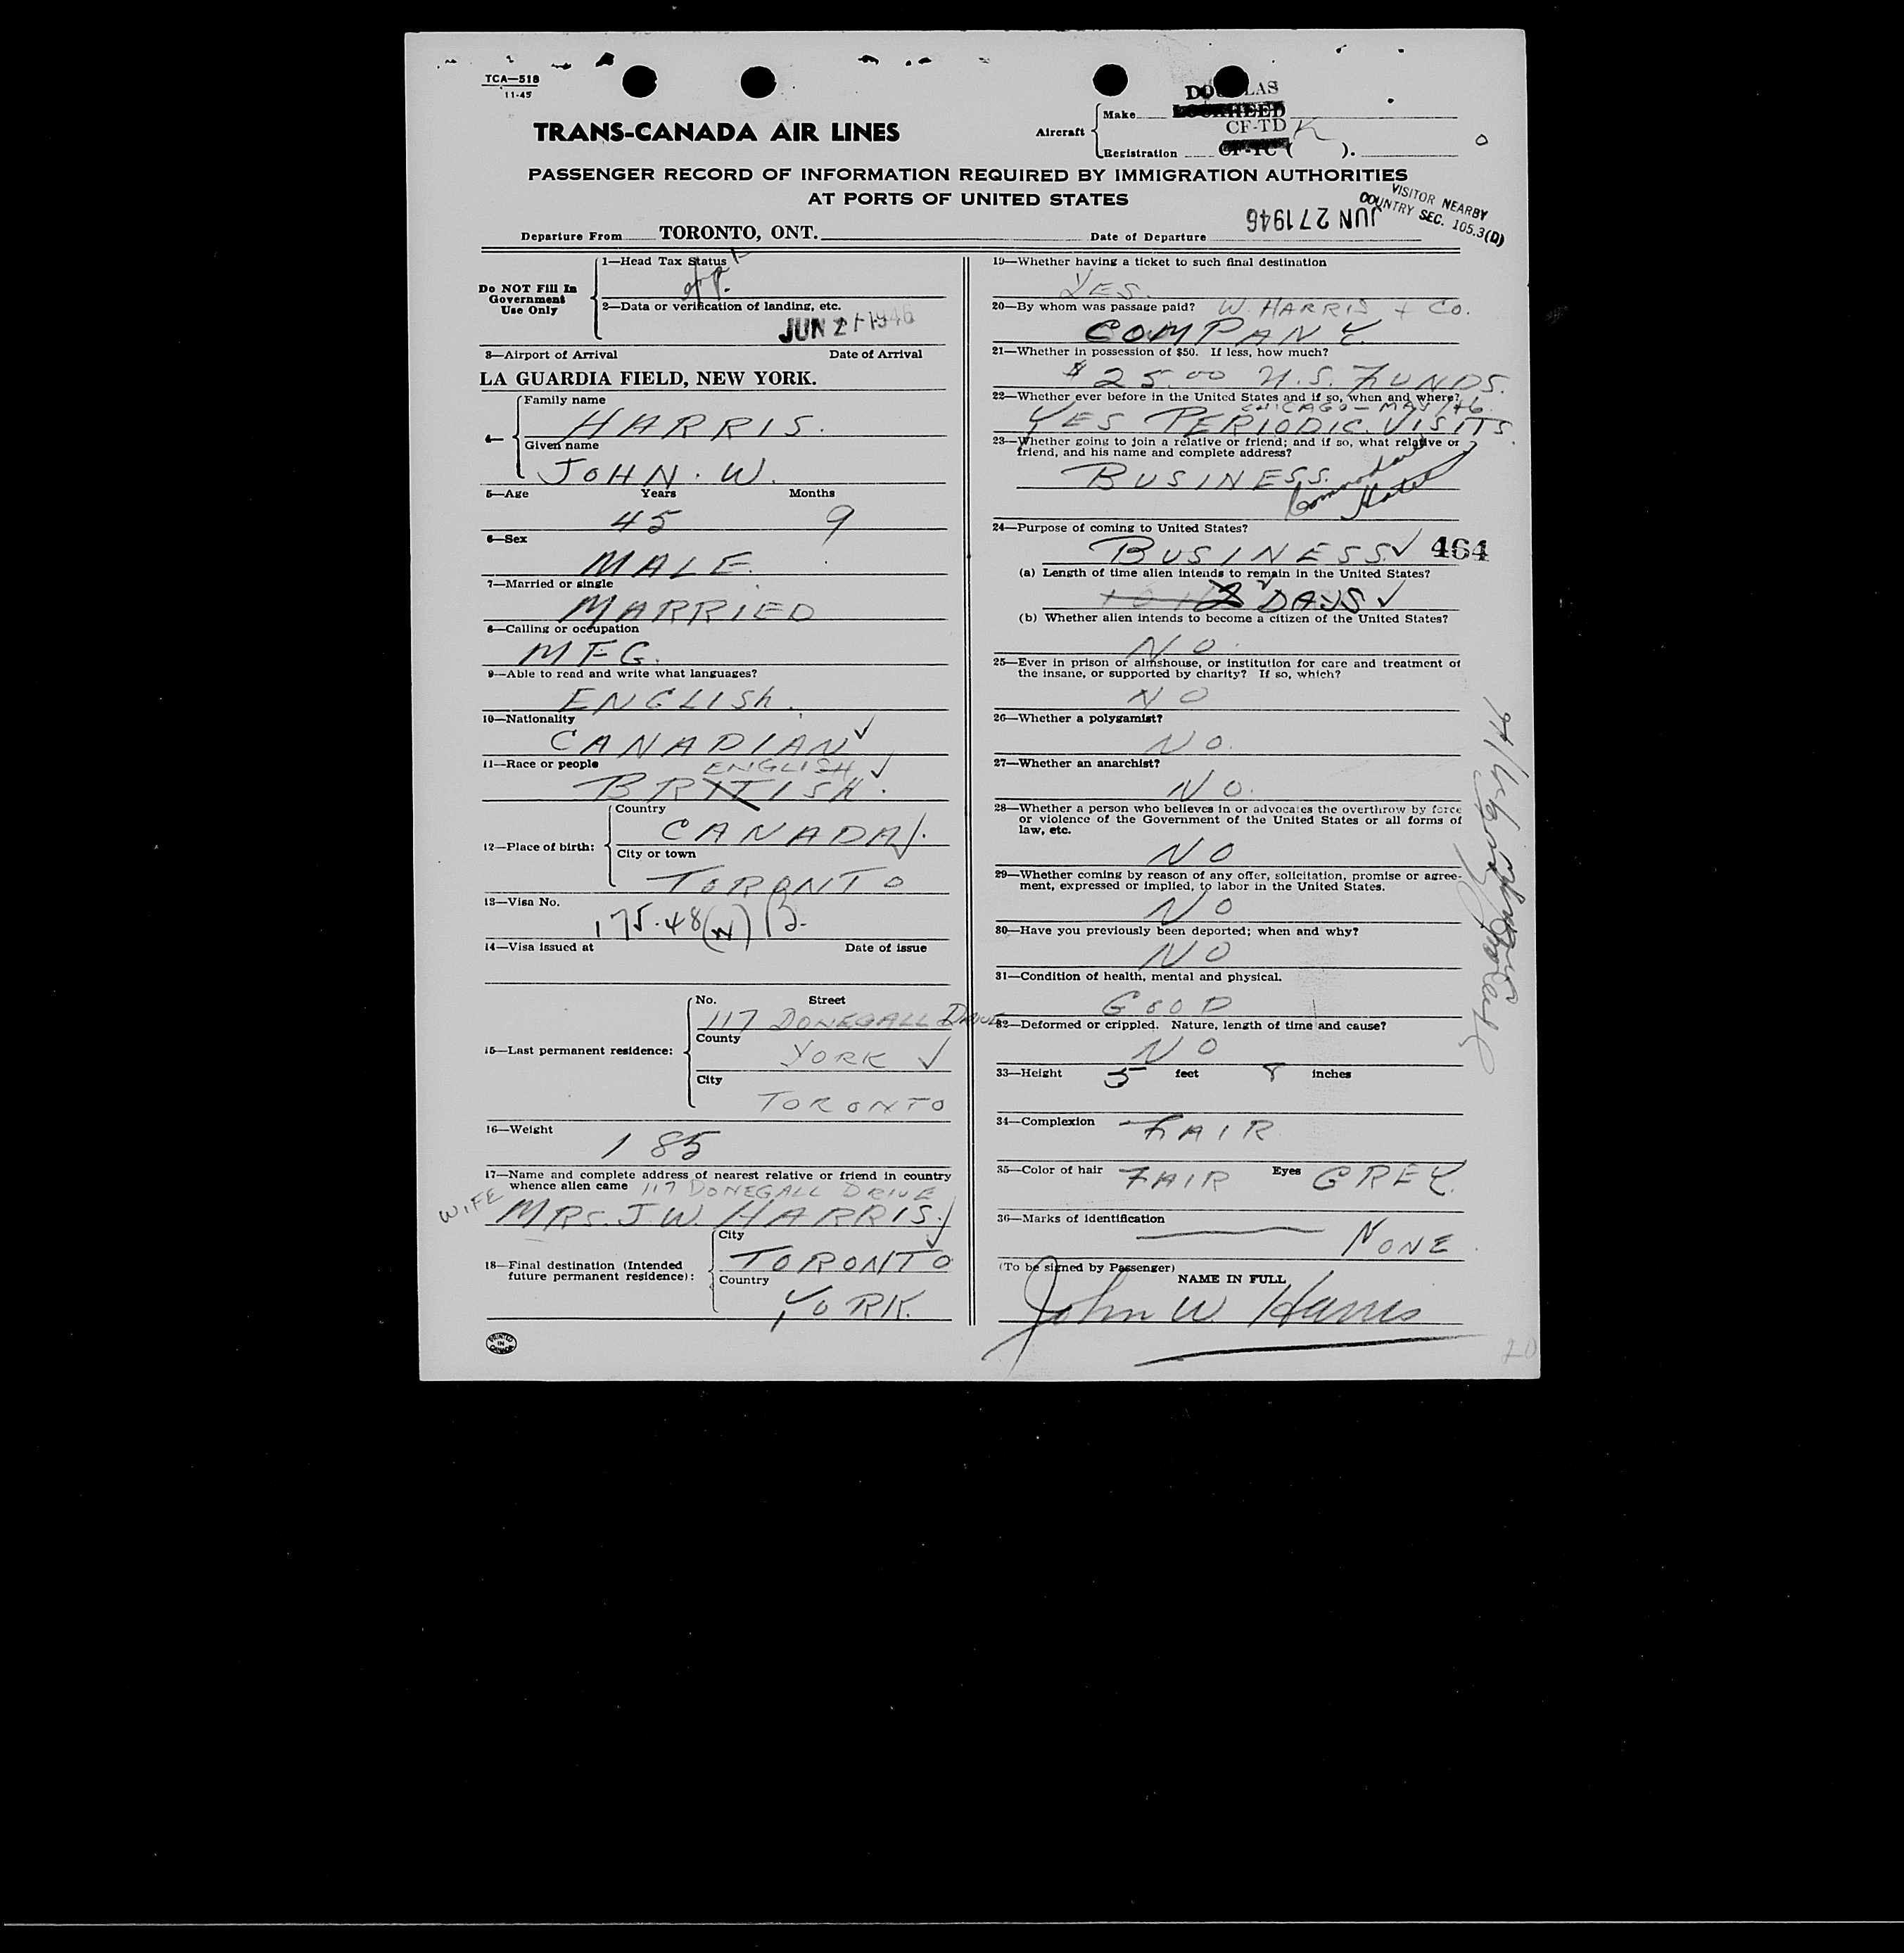 TCA—518
11-45
TRANS-CANADA AIR LINES
Aircraft
Make
DOUGLAS
LOCKHEED
CF-TD K
Registration CF-TC ( ).
PASSENGER RECORD OF INFORMATION REQUIRED BY IMMIGRATION AUTHORITIES
AT PORTS OF UNITED STATES
VISITOR NEARBY
COUNTRY SEC. 105.3(D)
Departure From TORONTO, ONT.
Date of Departure JUN 27 1946
Do NOT Fill In
Government
Use Only
1—Head Tax Status
2—Data or verification of landing, etc.
JUN 27 1946
3—Airport of Arrival Date of Arrival
LA GUARDIA FIELD, NEW YORK.
4—
Family name
HARRIS.
Given name
JOHN. W.
5—Age Years Months
45 9
6—Sex
MALE.
7—Married or single
MARRIED
8—Calling or occupation
MFG.
9—Able to read and write what languages?
ENGLISH.
10—Nationality
CANADIAN ✓
11—Race or people
ENGLISH ✓
BRITISH.
12—Place of birth:
Country
CANADA ✓.
City or town
TORONTO
13—Visa No.
175.48(W)
14—Visa issued at Date of issue
15—Last permanent residence:
No. Street
117 DONEGALL DRIVE
County
YORK ✓
City
TORONTO
16—Weight
185
17—Name and complete address of nearest relative or friend in country
whence alien came 117 DONEGALL DRIVE
WIFE MRS. J.W. HARRIS.
18—Final destination (Intended
future permanent residence):
City
TORONTO
Country
YORK.
PRINTED
IN
CANADA
19—Whether having a ticket to such final destination
YES.
20—By whom was passage paid? W. HARRIS + CO.
COMPANY.
21—Whether in possession of $50. If less, how much?
$25.00 U.S. FUNDS.
22—Whether ever before in the United States and if so, when and where?
CHICAGO — MAY/46
YES PERIODIC. VISITS.
23—Whether going to join a relative or friend; and if so, what relative or
friend, and his name and complete address?
BUSINESS.
Commodore
Hotel
24—Purpose of coming to United States?
BUSINESS ✓ 464
(a) Length of time alien intends to remain in the United States?
2 DAYS ✓
(b) Whether alien intends to become a citizen of the United States?
NO.
25—Ever in prison or almshouse, or institution for care and treatment of
the insane, or supported by charity? If so, which?
NO
26—Whether a polygamist?
NO.
27—Whether an anarchist?
NO.
28—Whether a person who believes in or advocates the overthrow by force
or violence of the Government of the United States or all forms of
law, etc.
NO
29—Whether coming by reason of any offer, solicitation, promise or agree-
ment, expressed or implied, to labor in the United States.
NO
30—Have you previously been deported; when and why?
NO
31—Condition of health, mental and physical.
GOOD
32—Deformed or crippled. Nature, length of time and cause?
NO
33—Height 5 feet 8 inches
34—Complexion FAIR
35—Color of hair FAIR Eyes GREY.
36—Marks of identification
NONE.
(To be signed by Passenger)
NAME IN FULL
John W Harris
20